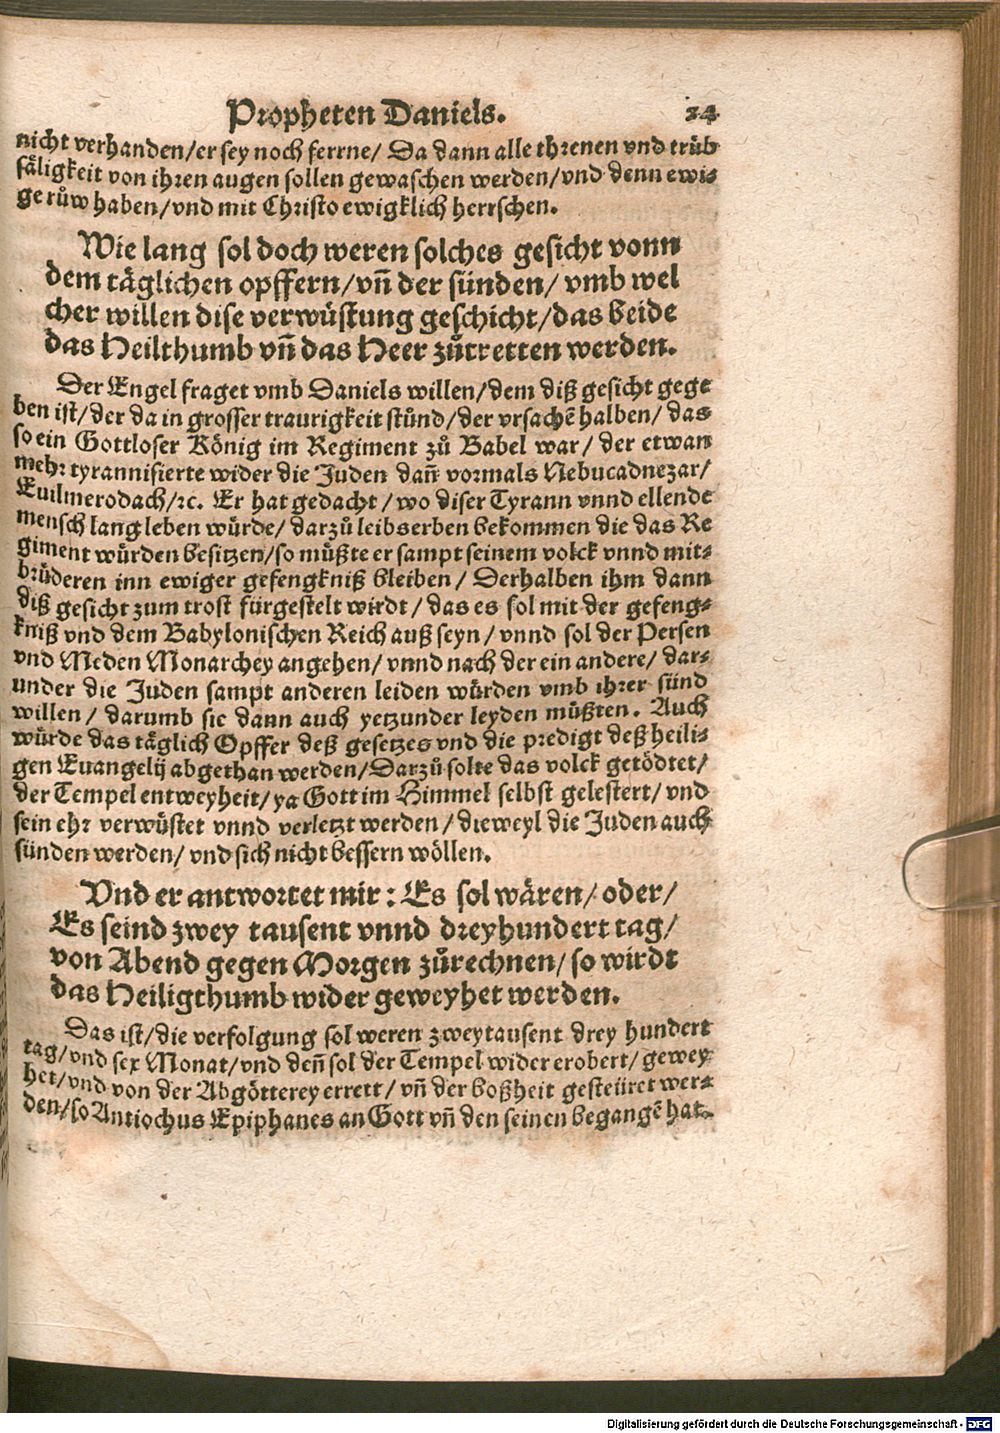 Propheten Daniels. 24
nicht verhanden/ er sey noch ferrne/ Da dann alle threnen vnd trüb
säligkeit von ihren augen sollen gewaschen werden/ vnd denn ewi-
ge růw haben/ vnd mit Christo ewigklich herrschen.
Wie lang sol doch weren solches gesicht vonn
dem täglichen opffern/ vñ der sünden/ vmb wel
cher willen dise verwüstung geschicht/ das beide
das Heilthumb vñ das Heer zůtretten werden.
Der Engel fraget vmb Daniels willen/ dem diß gesicht gege
ben ist/ der da in grosser traurigkeit stůnd/ der vrsachē halben/ das
so ein Gottloser König im Regiment zů Babel war/ der etwan
mehr tyrannisierte wider die Juden dañ vormals Nebucadnezar/
Euilmerodach/ ꝛc. Er hat gedacht/ wo diser Tyrann vnnd ellende
mensch lang leben würde/ darzů leibserben bekommen die das Re
giment würden besitzen/ so müßte er sampt seinem volck vnnd mit-
brüderen inn ewiger gefengkniß bleiben/ Derhalben ihm dann
diß gesicht zum trost fürgestelt wirdt/ das es sol mit der gefeng-
kniß vnd dem Babylonischen Reich auß seyn/ vnnd sol der Persen
vnd Meden Monarchey angehen/ vnnd nach der ein andere/ dar-
under die Juden sampt anderen leiden würden vmb ihrer sünd
willen/ darumb sie dann auch yetzunder leyden müßten. Auch
würde das täglich Opffer deß gesetzes vnd die predigt deß heili-
gen Euangelij abgethan werden/ Darzů solte das volck getödtet/
der Tempel entweyheit/ ya Gott im Himmel selbst gelestert/ vnd
sein ehr verwüstet vnnd verletzt werden/ dieweyl die Juden auch
sünden werden/ vnd sich nicht bessern wöllen.
Vnd er antwortet mir: Es sol wären/ oder/
Es seind zwey tausent vnnd dreyhundert tag/
von Abend gegen Morgen zůrechnen/ so wirdt
das Heiligthumb wider geweyhet werden.
Das ist/ die verfolgung sol weren zweytausent drey hundert
tag/ vnd sex Monat/ vnd deñ sol der Tempel wider erobert/ gewey-
het/ vnd von der Abgötterey errett/ vñ der boßheit gesteüret wer-
den/ so Antiochus Epiphanes an Gott vñ den seinen begangē hat.
Digitalisierung gefördert durch die Deutsche Forschungsgemeinschaft - DFG